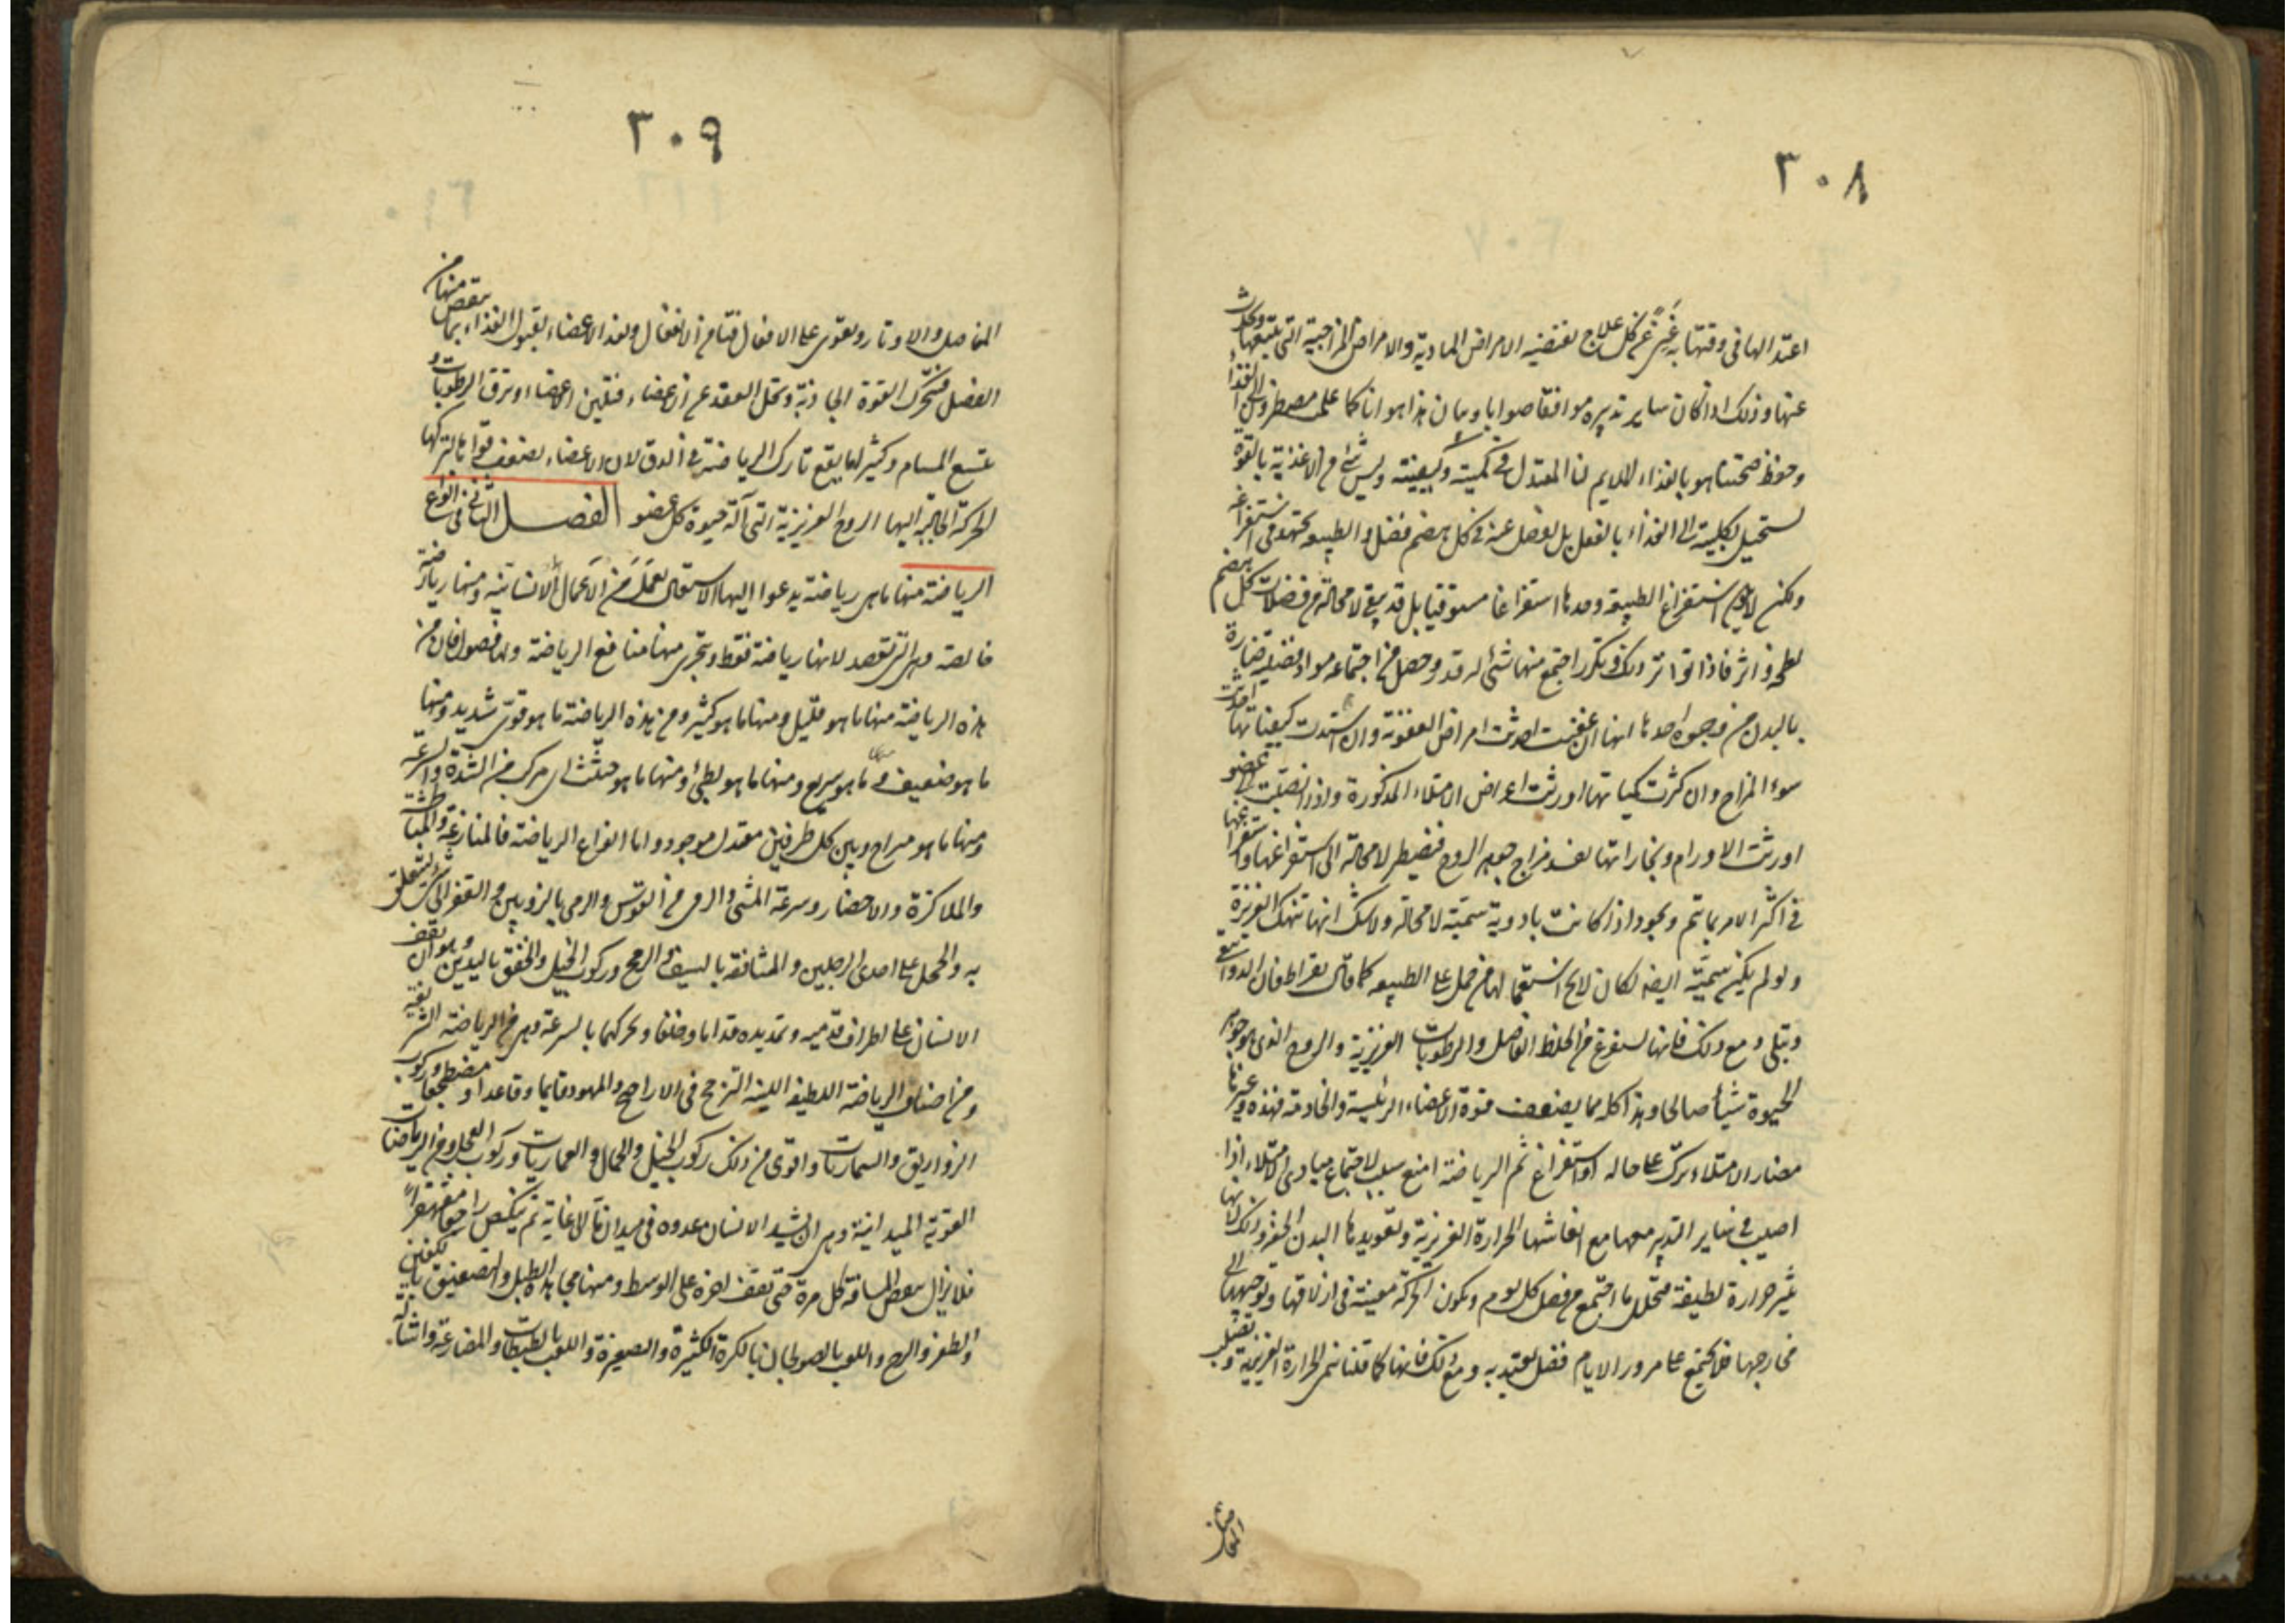 ٣٠٨
اعتدالها فى وقتها به غَنِىٌّ عن كل علاج تقتضيه الامراض المادية والامراض المزاجية التى تتبعها وتحدث
عنها وذلك اذا كان ساير تدبيره موافقا صوابا وبيان هذا هو انا كما علمت مضطرون الى الغذاء
وحفظ صحتنا هو بالغذاء الملايم لنا المعتدل فى كميته وكيفيته وليس شئ من الاغذية بالقوة
يستحيل بكليته الى الغذاء بالفعل بل يفضل عنه فى كل هضم فضل والطبيعة تجتهد فى استفراغه
ولكن لا يكون استفراغ الطبيعة وحدها استفراغا مستوفيا بل قد يبقى لا محالة من فضلات كل هضم
لطخة واثر فاذا تواتر ذلك وتكرر اجتمع منها شئ له قدر وحصل من اجتماعه مواد فضلية ضارة
بالبدن من وجوه احدها انها ان عفنت احدثت امراض العفونة وان اشتدت كيفياتها احدثت
سوء المزاج وان كثرت كمياتها اورثت امراض الامتلاء المذكورة واذا انصبت الى عضو
اورثت الاورام وبخاراتها تفسد مزاج جوهر الروح فيضطر لا محالة الى استفراغها واستفراغها
فى اكثر الامر بما يتم ويجود اذا كانت بادوية سمية لا محالة ولا شك انها تنهك الغريزة
ولو لم يكن سمية ايضا لكان لا يخ استعمالها من حمل على الطبيعة كما قال بقراط فان الدواء ينقى
وينكى ومع ذلك فانها تستفرغ من الخلط الفاضل والرطوبات الغريزية والروح الذى هو جوهر
الحيوة شيأ صالحا وهذا كله مما يضعف قوة الاعضاء الرئيسة والخادمة فهذه وغيرها
مضار الامتلاء ترك على حاله او استفراغ ثم الرياضة امنع سبب لاجتماع مبادى الامتلاء اذا
اصيب فى ساير التدبير معها مع انعاشها الحرارة الغريزية وتعويدها البدن الخفة وذلك لانها
تثير حرارة لطيفة فتحلل ما اجتمع من فضل كل يوم وتكون الحركة معينة فى ازلاقها وتوجيهها الى
مخارجها فلا يجتمع على مرور الايام فضل يعتد به ومع ذلك فانها كما قلنا تنمى الحرارة الغريزية وتصلب
المفاصل
٣٠٩
المفاصل والاوتار وتقوى على الافعال فيتا من الانفعال وتعد الاعضاء لقبول الغذاء بما ينقص منها من
الفضل فتتحرك القوة الجاذبة وتحل العقد عن الاعضاء فتلين الاعضاء وترق الرطوبات و
تتسع المسام وكثيرا ما يقع تارك الرياضة فى الدق لان الاعضاء تضعف قواها لتركها
الحركة الجالبة اليها الروح الغريزية التى آلة حيوة كل عضو الفصل الثانى فى انواع
الرياضة منها ما هى رياضة يدعوا اليها الاشتغال بعمل من الاعمال الانسانية ومنها رياضة
خالصة وهى التى تقصد لانها رياضة فقط وتتحرى منها منافع الرياضة ولها فصول فان من
هذه الرياضة منها ما هو قليل ومنها ما هو كثير ومن هذه الرياضة ما هو قوى شديد ومنها
ما هو ضعيف ومنها ما هو سريع ومنها ما هو بطئ ومنها ما هو حثيث اى مركب من الشدة والسرعة
ومنها ما هو متراخ وبين كل طرفين معتدل موجود واما انواع الرياضة فالمنازعة والمباطشة
والملاكزة والاحضار وسرعة المشى والرمى من القوس والرمى بالزوبين والقفز الى شئ ليتعلق
به والحجل على احدى الرجلين والمثاقفة بالسيف والرمح وركوب الخيل والخفق باليدين وهو ان يقف
الانسان على اطراف قدميه ويمد يده قداما وخلفا ويحركهما بالسرعة وهى من الرياضة السريعة
ومن اصناف الرياضة اللطيفة اللينة الترجح فى الاراجيح والمهود قايما وقاعدا ومضطجعا وركوب
الزواريق والسماريات واقوى من ذلك ركوب الخيل والجمال والعماريات وركوب العجل ومن الرياضات
القوية الميدانية وهى ان يشد الانسان عدوه فى ميدان ما الى غاية ثم ينكص راجعا مقهقرا
فلا يزال ينقص المسافة كل مرة حتى يقف اخره على الوسط ومنها مجاهدة الظل والتصفيق بالكفين
والطفر والزج واللعب بالصولجان بالكرة الكبيرة والصغيرة واللعب بالطبطاب والمصارعة واشالة